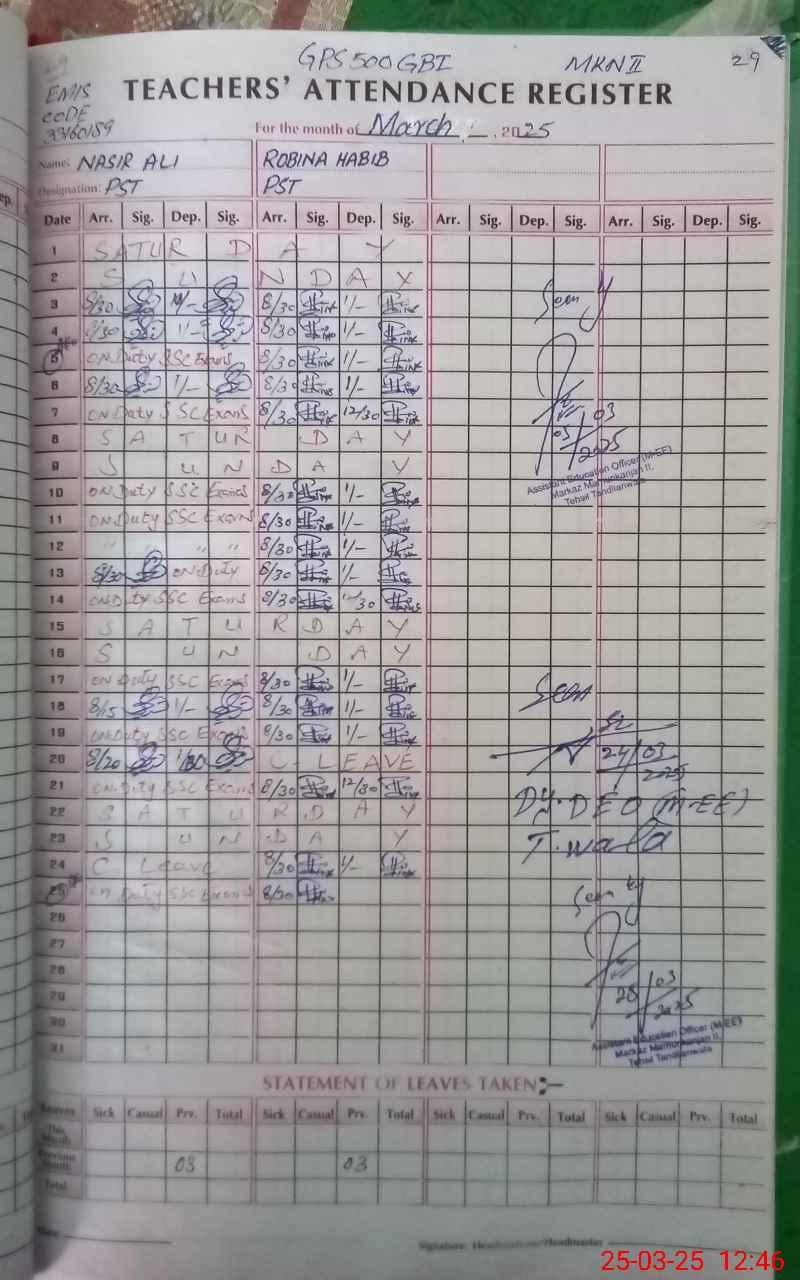 GPS 500 GB I MKN II 29
EMIS CODE 33160189
TEACHERS' ATTENDANCE REGISTER
For the month of March, 2025
Name: NASIR ALI ROBINA HABIB
Designation: PST PST
Date Arr. Sig. Dep. Sig. Arr. Sig. Dep. Sig. Arr. Sig. Dep. Sig. Arr. Sig. Dep. Sig.
1 SATURDAY
2 SUNDAY
3 8/30 1/- 8/30 1/- Seen
4 8/30 1/- 8/30 1/-
5 ON Duty SSC Exams 8/30 1/-
6 8/30 1/- 8/30 1/-
7 ON Duty SSC Exams 8/30 12/30 03
8 SATURDAY 05/2025
9 SUNDAY
Assistant Education Officer (M-EE)
Markaz Mamunkanjan II,
Tehsil Tandlianwala
10 ON Duty SSC Exams 8/30 1/-
11 ON Duty SSC Exams 8/30 1/-
12 " " " " 8/30 1/-
13 8/30 ON Duty 8/30 1/-
14 ON Duty SSC Exams 8/30 12/30
15 SATURDAY
16 SUNDAY
17 ON Duty SSC Exams 8/30 1/- Seen
18 8/15 1/- 8/30 1/-
19 ON Duty SSC Exams 8/30 1/-
20 8/20 1/30 C-LEAVE 24/03
2025
21 ON Duty SSC Exams 8/30 12/30 Dy. DEO (M-EE)
22 SATURDAY
23 SUNDAY T.wala
24 C Leave 8/30 1/-
25 on Duty SSC Exams 8/30 Seen
26
27
28 03
29 28/2025
30
31
Assistant Education Officer (M-EE)
Markaz Mamunkanjan II,
Tehsil Tandlianwala
STATEMENT OF LEAVES TAKEN:-
Leaves Sick Casual Prv. Total Sick Casual Prv. Total Sick Casual Prv. Total Sick Casual Prv. Total
This Month
Previous Month 03 03
Total
Signature: Headmistress/Headmaster
25-03-25 12:46